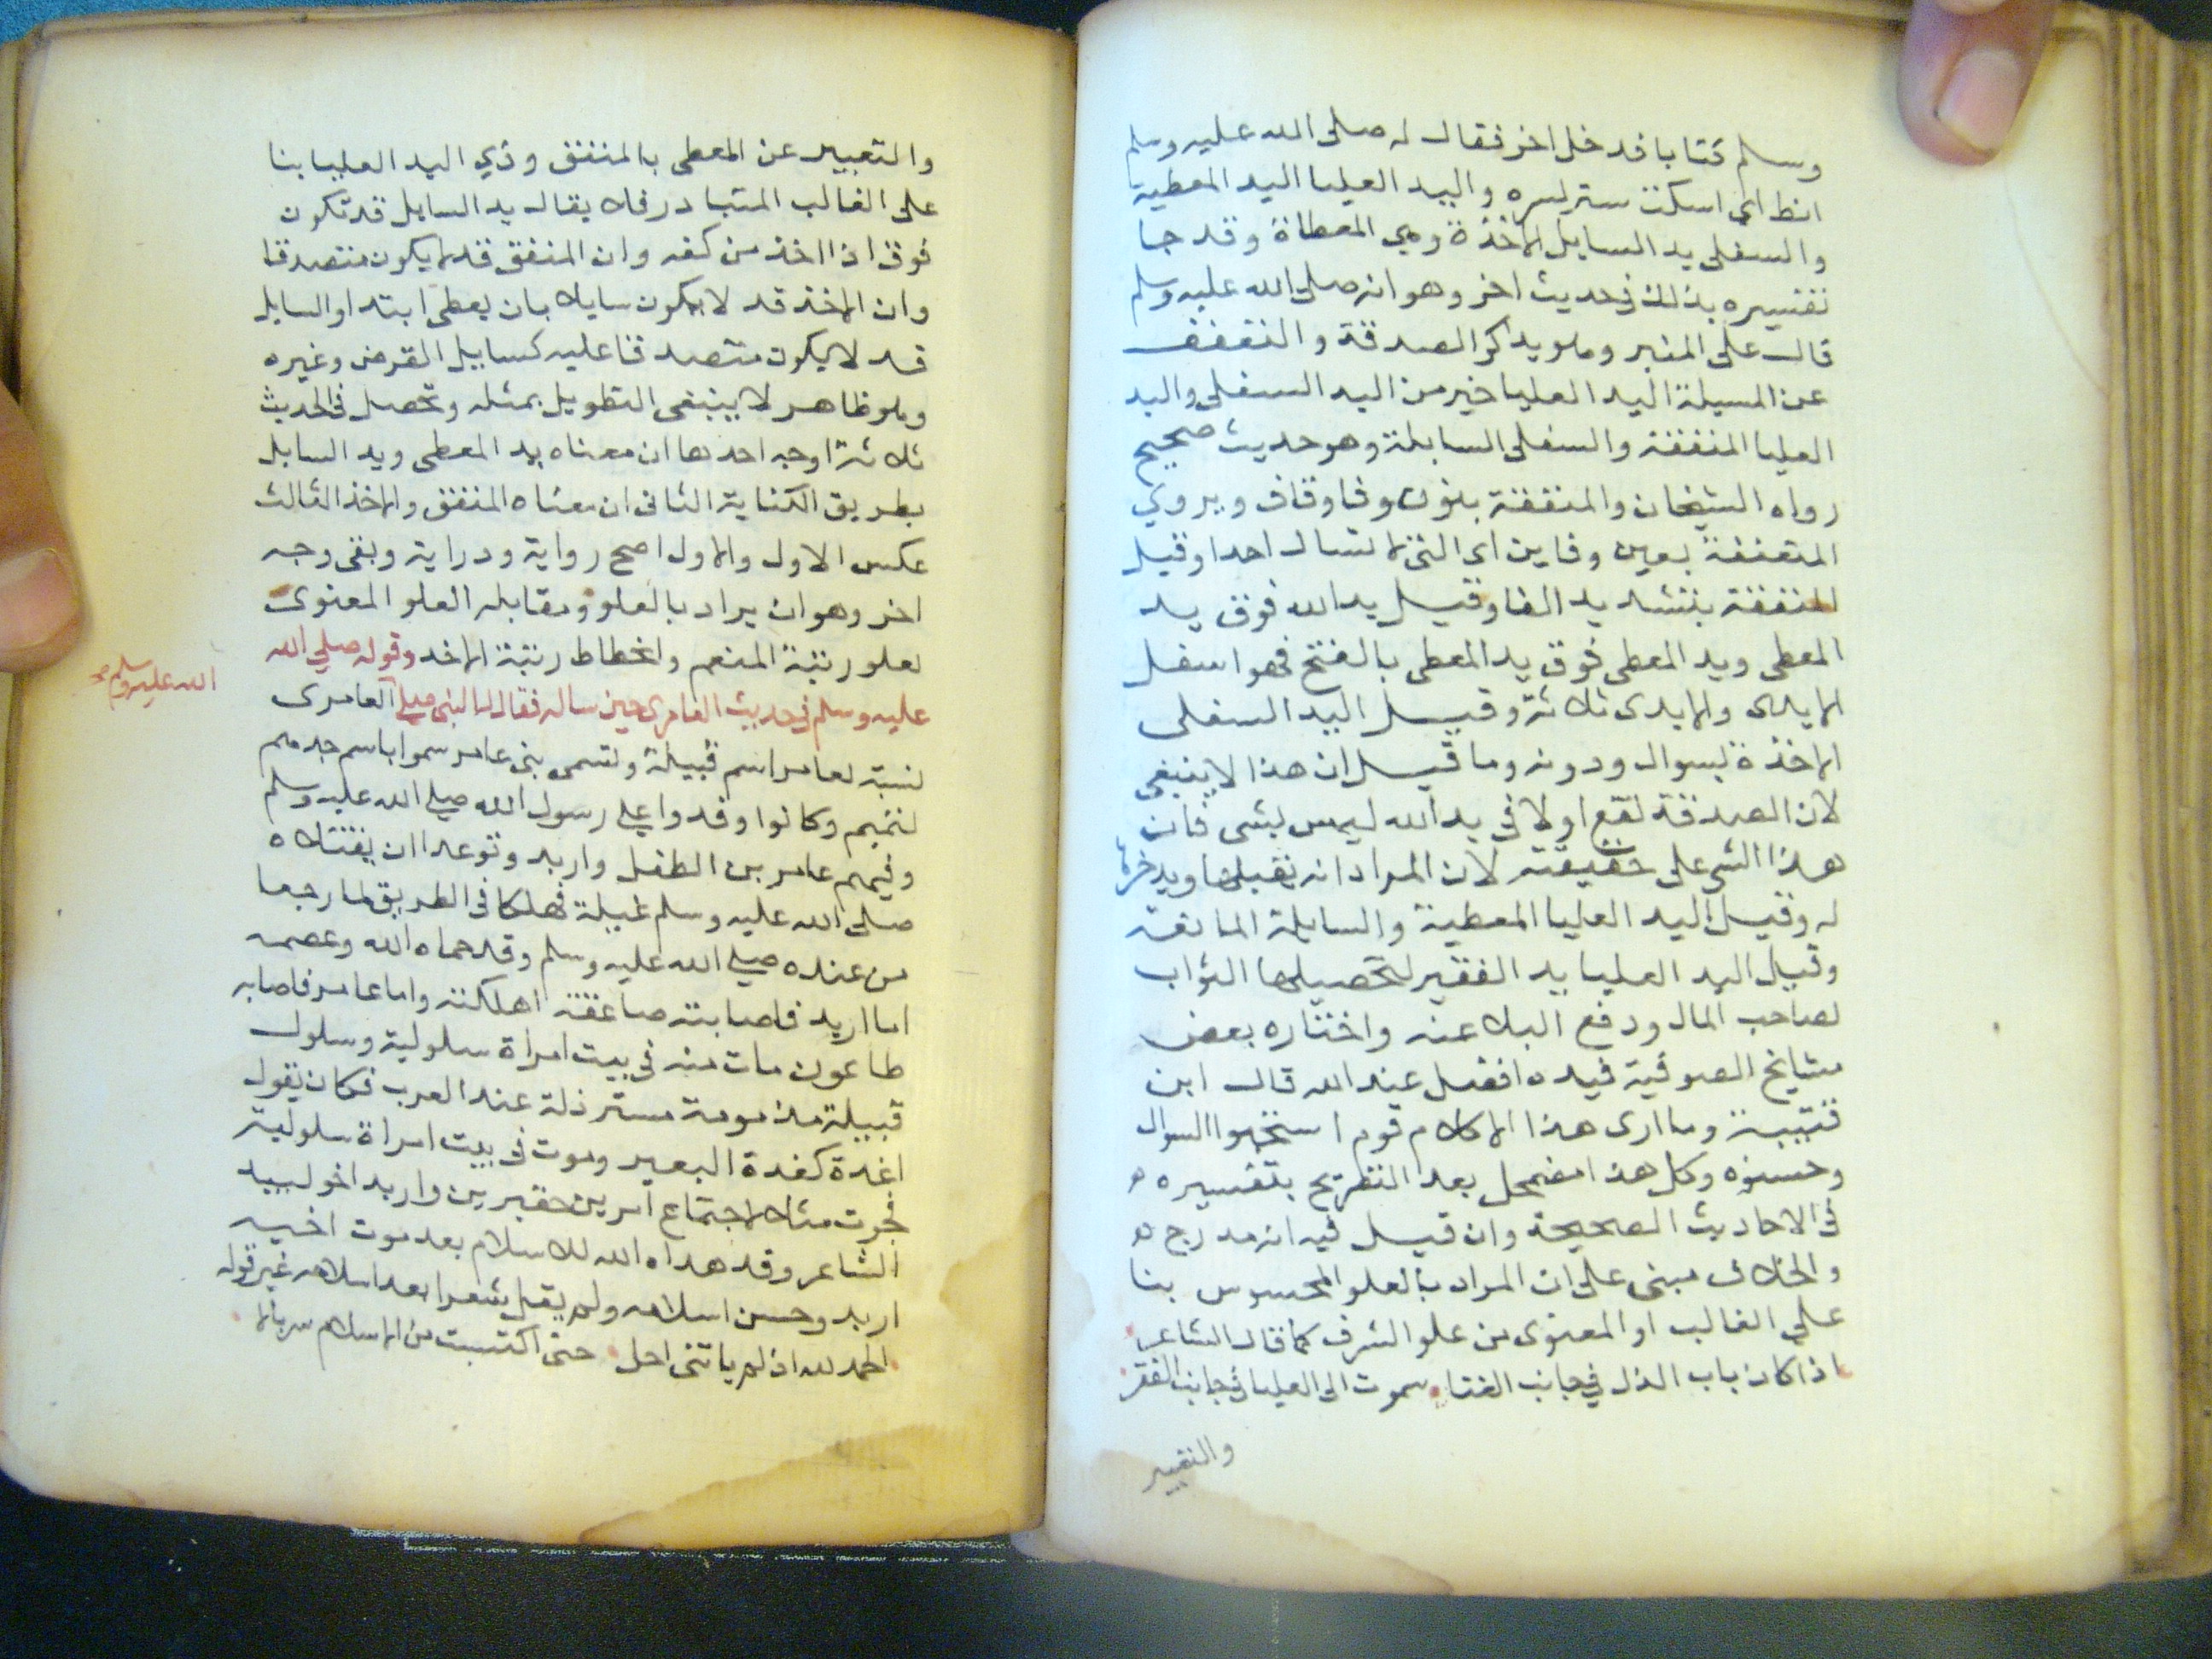 وسلم كتابا فدخل اخر فقال له صلى الله عليه وسلم
انط اي اسكت ستر لسره واليد العليا اليد المعطية
والسفلى يد السايل الاخذة وهي المعطاة وقد جا
تفسيره بذلك في حديث اخر وهو انه صلى الله عليه وسلم
قال على المنبر وهو يذكر الصدقة والتعفف
عن المسيلة اليد العليا خير من اليد السفلى واليد
العليا المنفقة والسفلى السايلة وهو حديث صحيح
رواه الشيخان والمنفقة بنون وفا وقاف ويروي
المتعففة بعين وفاين اى التى لا تسال احدا وقيل
المنفقة بتشديد الفا وقيل يد الله فوق يد
المعطى ويد المعطى فوق يد المعطى بالفتح فهو اسفل
الايدى والايدى ثلاثة وقيل اليد السفلى
الاخذة بسوال ودونه وما قيل ان هذا لا ينبغى
لان الصدقة تقع اولا في يد الله ليس بشى فان
هذا الشى على حقيقته لان المراد انه يقبلها ويدخرها
له وقيل اليد العليا المعطية والسايلة المانعة
وقيل اليد العليا يد الفقير لتحصيلها الثواب
لصاحب المال ودفع البلا عنه واختاره بعض
مشايخ الصوفية فيده افضل عند الله قال ابن
قتيبة وما ارى هذا الا كلام قوم استخبوا السوال
وحسنوه وكل هذا مضمحل بعد التصريح بتفسيره
في الاحاديث الصحيحة وان قيل فيه انه مدرج
والخلاف مبنى على ان المراد بالعلو المحسوس بنا
على الغالب او المعنوى من علو الشرف كما قال الشاعر
اذا كان باب الذل في جانب الغنا سموت الى العليا في جانب الفقر
والتعبير
والتعبير عن المعطى بالمنفق وذي اليد العليا بنا
على الغالب المتبادر فلا يقال يد السايل قد تكون
فوق اذا اخذ من كفه وان المنفق قد لا يكون متصدقا
وان الاخذ قد لا يكون سايلا بان يعطى ابتدا والسايل
قد لا يكون متصدقا عليه كسايل القرض وغيره
وهو ظاهر لا ينبغى التطويل بمثله وتحصل في الحديث
ثلاثة اوجه احدها ان معناه يد المعطى ويد السايل
بطريق الكناية الثانى ان معناه المنفق والاخذ الثالث
عكس الاول والاول اصح رواية ودراية وبقى وجه
اخر وهو ان يراد بالعلو ومقابله العلو المعنوى
لعلو رتبة المنعم وانحطاط رتبة الاخذ وقوله صلى الله
عليه وسلم في حديث العامرى حين ساله فقال له النبى صلى العامرى
الله عليه وسلم صح
نسبة لعامر اسم قبيلة وتسمى بنى عامر سموا باسم جدهم
لتميم وكانوا وفدوا على رسول الله صلى الله عليه وسلم
وفيهم عامر بن الطفل واربد وتوعدا ان يقتلاه
صلى الله عليه وسلم غيلة فهلكا في الطريق لما رجعا
من عنده صلى الله عليه وسلم وقد حماه الله وعصمه
اما اربد فاصابته صاعقة اهلكته واما عامر فاصابه
طاعون مات منه في بيت امراة سلولية وسلول
قبيلة مذمومة مسترذلة عند العرب فكان يقول
اغدة كغدة البعير وموت في بيت امراة سلولية
فجرت مثلا لاجتماع امرين حقيرين واربد اخو لبيد
الشاعر وقد هداه الله للاسلام بعد موت اخيه
اربد وحسن اسلامه ولم يقل شعرا بعد اسلامه غير قوله
الحمد لله اذ لم ياتنى اجل حتى اكتسبت من الاسلام سربالا